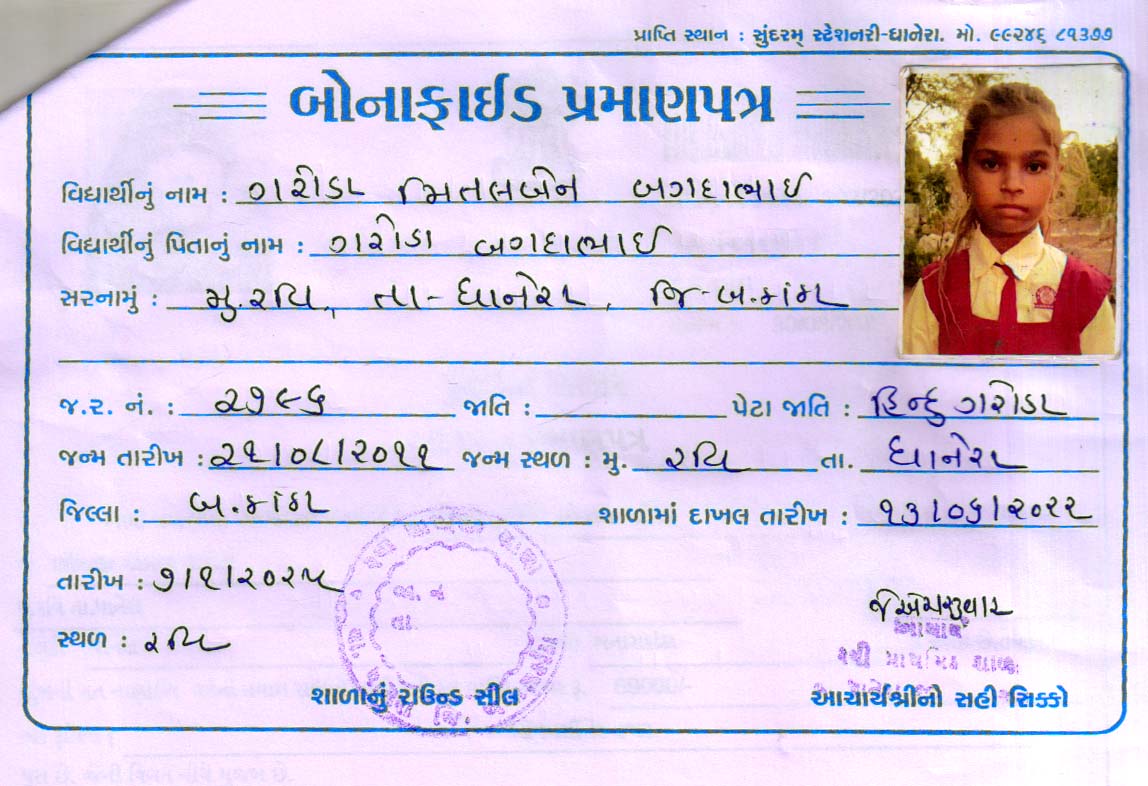 પ્રાપ્તિ સ્થાન : સુંદરમ્ સ્ટેશનરી-ધાનેરા. મો. ૯૯૨૪૬ ૮૧૩૭૭
બોનાફાઈડ પ્રમાણપત્ર
વિદ્યાર્થીનું નામ : ગરોડા મિતલબેન બગદાભાઈ
વિદ્યાર્થીનું પિતાનું નામ : ગરોડા બગદાભાઈ
સરનામું : મુ. રવિ, તા-ધાનેરા, જિ-બ.કાંઠા
જ.ર. નં. : ૨૭૯૬ જાતિ : પેટા જાતિ : હિન્દુ ગરોડા
જન્મ તારીખ : ૨૧/૦૮/૨૦૧૧ જન્મ સ્થળ : મુ. રવિ તા. ધાનેરા
જિલ્લા : બ.કાંઠા શાળામાં દાખલ તારીખ : ૧૩/૦૬/૨૦૨૨
તારીખ : ૭/૧/૨૦૨૫
સ્થળ : રવિ
આચાર્ય
રવી પ્રાથમિક શાળા
શાળાનું રાઉન્ડ સીલ આચાર્યશ્રીનો સહી સિક્કો